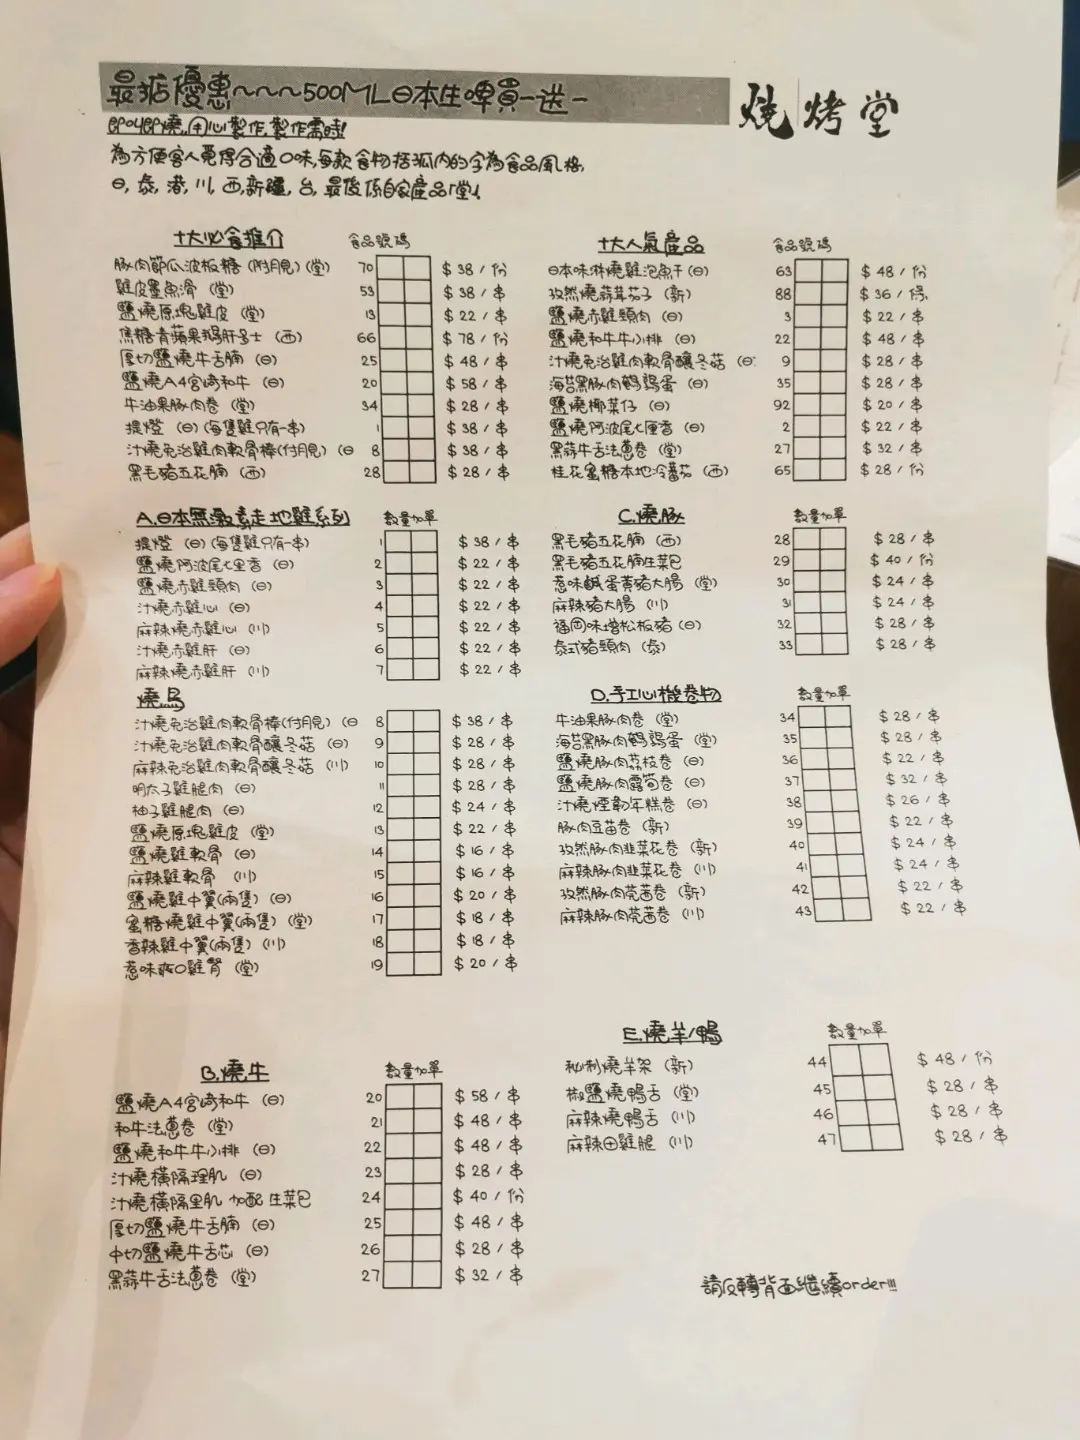 最掂優惠~~~500ML日本生啤買一送一
燒烤堂
即叫即燒,用心製作,製作需時!
為方便客人覓得合適口味,每款食物括弧內的字為食品風格,
日,泰,港,川,西,新疆,台,最後係自家產品「堂」
十大必食推介 食品號碼
豚肉節瓜波板糖(附月見)(堂) 70 $38/份
雞皮墨魚滑(堂) 53 $38/串
鹽燒原塊雞皮(堂) 13 $22/串
焦糖青蘋果鵝肝多士(西) 66 $78/份
厚切鹽燒牛舌腩(日) 25 $48/串
鹽燒A4宮崎和牛(日) 20 $58/串
牛油果豚肉卷(堂) 34 $28/串
提燈(日)(每隻雞只有一串) 1 $38/串
汁燒免治雞肉軟骨棒(付月見)(日 8 $38/串
黑毛豬五花腩(西) 28 $28/串
十大人氣產品 食品號碼
日本味淋燒雞泡魚干(日) 63 $48/份
孜然燒蒜茸茄子(新) 88 $36/條
鹽燒赤雞頸肉(日) 3 $22/串
鹽燒和牛牛小排(日) 22 $48/串
汁燒免治雞肉軟骨釀冬菇(日 9 $28/串
海苔黑豚肉鵪鶉蛋(日) 35 $28/串
鹽燒椰菜仔(日) 92 $20/串
鹽燒阿波尾七里香(日) 2 $22/串
黑蒜牛舌法蔥卷(堂) 27 $32/串
桂花蜜糖本地冷蕃茄(西) 65 $28/份
A.日本無激素走地雞系列 數量加單
提燈(日)(每隻雞只有一串) 1 $38/串
鹽燒阿波尾七里香(日) 2 $22/串
鹽燒赤雞頸肉(日) 3 $22/串
汁燒赤雞心(日) 4 $22/串
麻辣燒赤雞心(川) 5 $22/串
汁燒赤雞肝(日) 6 $22/串
麻辣燒赤雞肝(川) 7 $22/串
燒鳥
汁燒免治雞肉軟骨棒(付月見)(日 8 $38/串
汁燒免治雞肉軟骨釀冬菇(日) 9 $28/串
麻辣免治雞肉軟骨釀冬菇(川) 10 $28/串
明太子雞腿肉(日) 11 $28/串
柚子雞腿肉(日) 12 $24/串
鹽燒原塊雞皮(堂) 13 $22/串
鹽燒雞軟骨(日) 14 $16/串
麻辣雞軟骨(川) 15 $16/串
鹽燒雞中翼(兩隻)(日) 16 $20/串
蜜糖燒雞中翼(兩隻)(堂) 17 $18/串
香辣雞中翼(兩隻)(川) 18 $18/串
惹味爽口雞腎(堂) 19 $20/串
B.燒牛 數量加單
鹽燒A4宮崎和牛(日) 20 $58/串
和牛法蔥卷(堂) 21 $48/串
鹽燒和牛牛小排(日) 22 $48/串
汁燒橫隔理肌(日) 23 $28/串
汁燒橫隔里肌 加配生菜包 24 $40/份
厚切鹽燒牛舌腩(日) 25 $48/串
中切鹽燒牛舌芯(日) 26 $28/串
黑蒜牛舌法蔥卷(堂) 27 $32/串
C.燒豚 數量加單
黑毛豬五花腩(西) 28 $28/串
黑毛豬五花腩生菜包 29 $40/份
惹味鹹蛋黃豬大腸(堂) 30 $24/串
麻辣豬大腸(川) 31 $24/串
福岡味增松板豬(日) 32 $28/串
泰式豬頸肉(泰) 33 $28/串
D.手工心機卷物 數量加單
牛油果豚肉卷(堂) 34 $28/串
海苔黑豚肉鵪鶉蛋(堂) 35 $28/串
鹽燒豚肉荔枝卷(日) 36 $22/串
鹽燒豚肉露筍卷(日) 37 $32/串
汁燒煙韌年糕卷(日) 38 $26/串
豚肉豆苗卷(新) 39 $22/串
孜然豚肉韭菜花卷(新) 40 $24/串
麻辣豚肉韭菜花卷(川) 41 $24/串
孜然豚肉芫茜卷(新) 42 $22/串
麻辣豚肉芫茜卷(川) 43 $22/串
E.燒羊/鴨 數量加單
秘制燒羊架(新) 44 $48/份
椒鹽燒鴨舌(堂) 45 $28/串
麻辣燒鴨舌(川) 46 $28/串
麻辣田雞腿(川) 47 $28/串
請反轉背面繼續order!!!